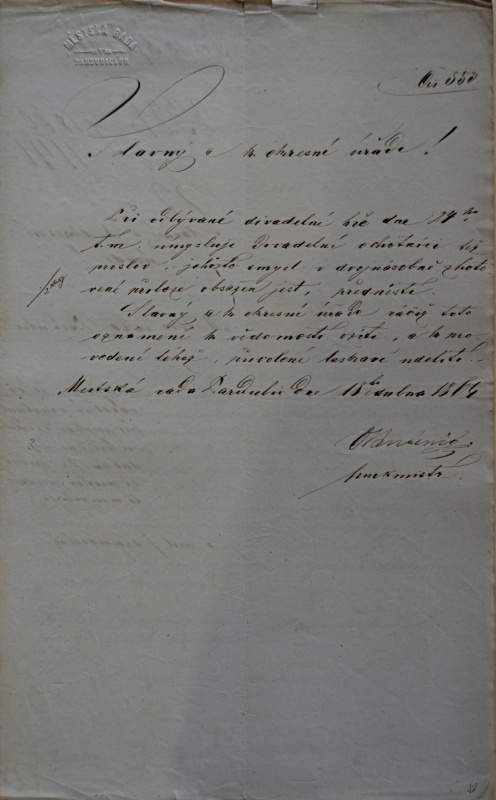 MĚSTSKÁ RADA
V
PARDUBICÍCH
Čís 558
Slavný c. k. okresní úřade!
Při odbývané divadelní hře dne 24ho
t.m. umysluje divadelní ochotníci též
proslov, jehožto smysl v dvojnásobně zhoto
vené příloze obsažen jest, přednésti.
Slavný c. k. okresní úřade račiž toto
oznámení k vědomosti vzíti, a k pro
vedení téhož, přivolení laskavě uděliti.
Městská rada Pardubic dne 18ho dubna 1864
purkmistr.